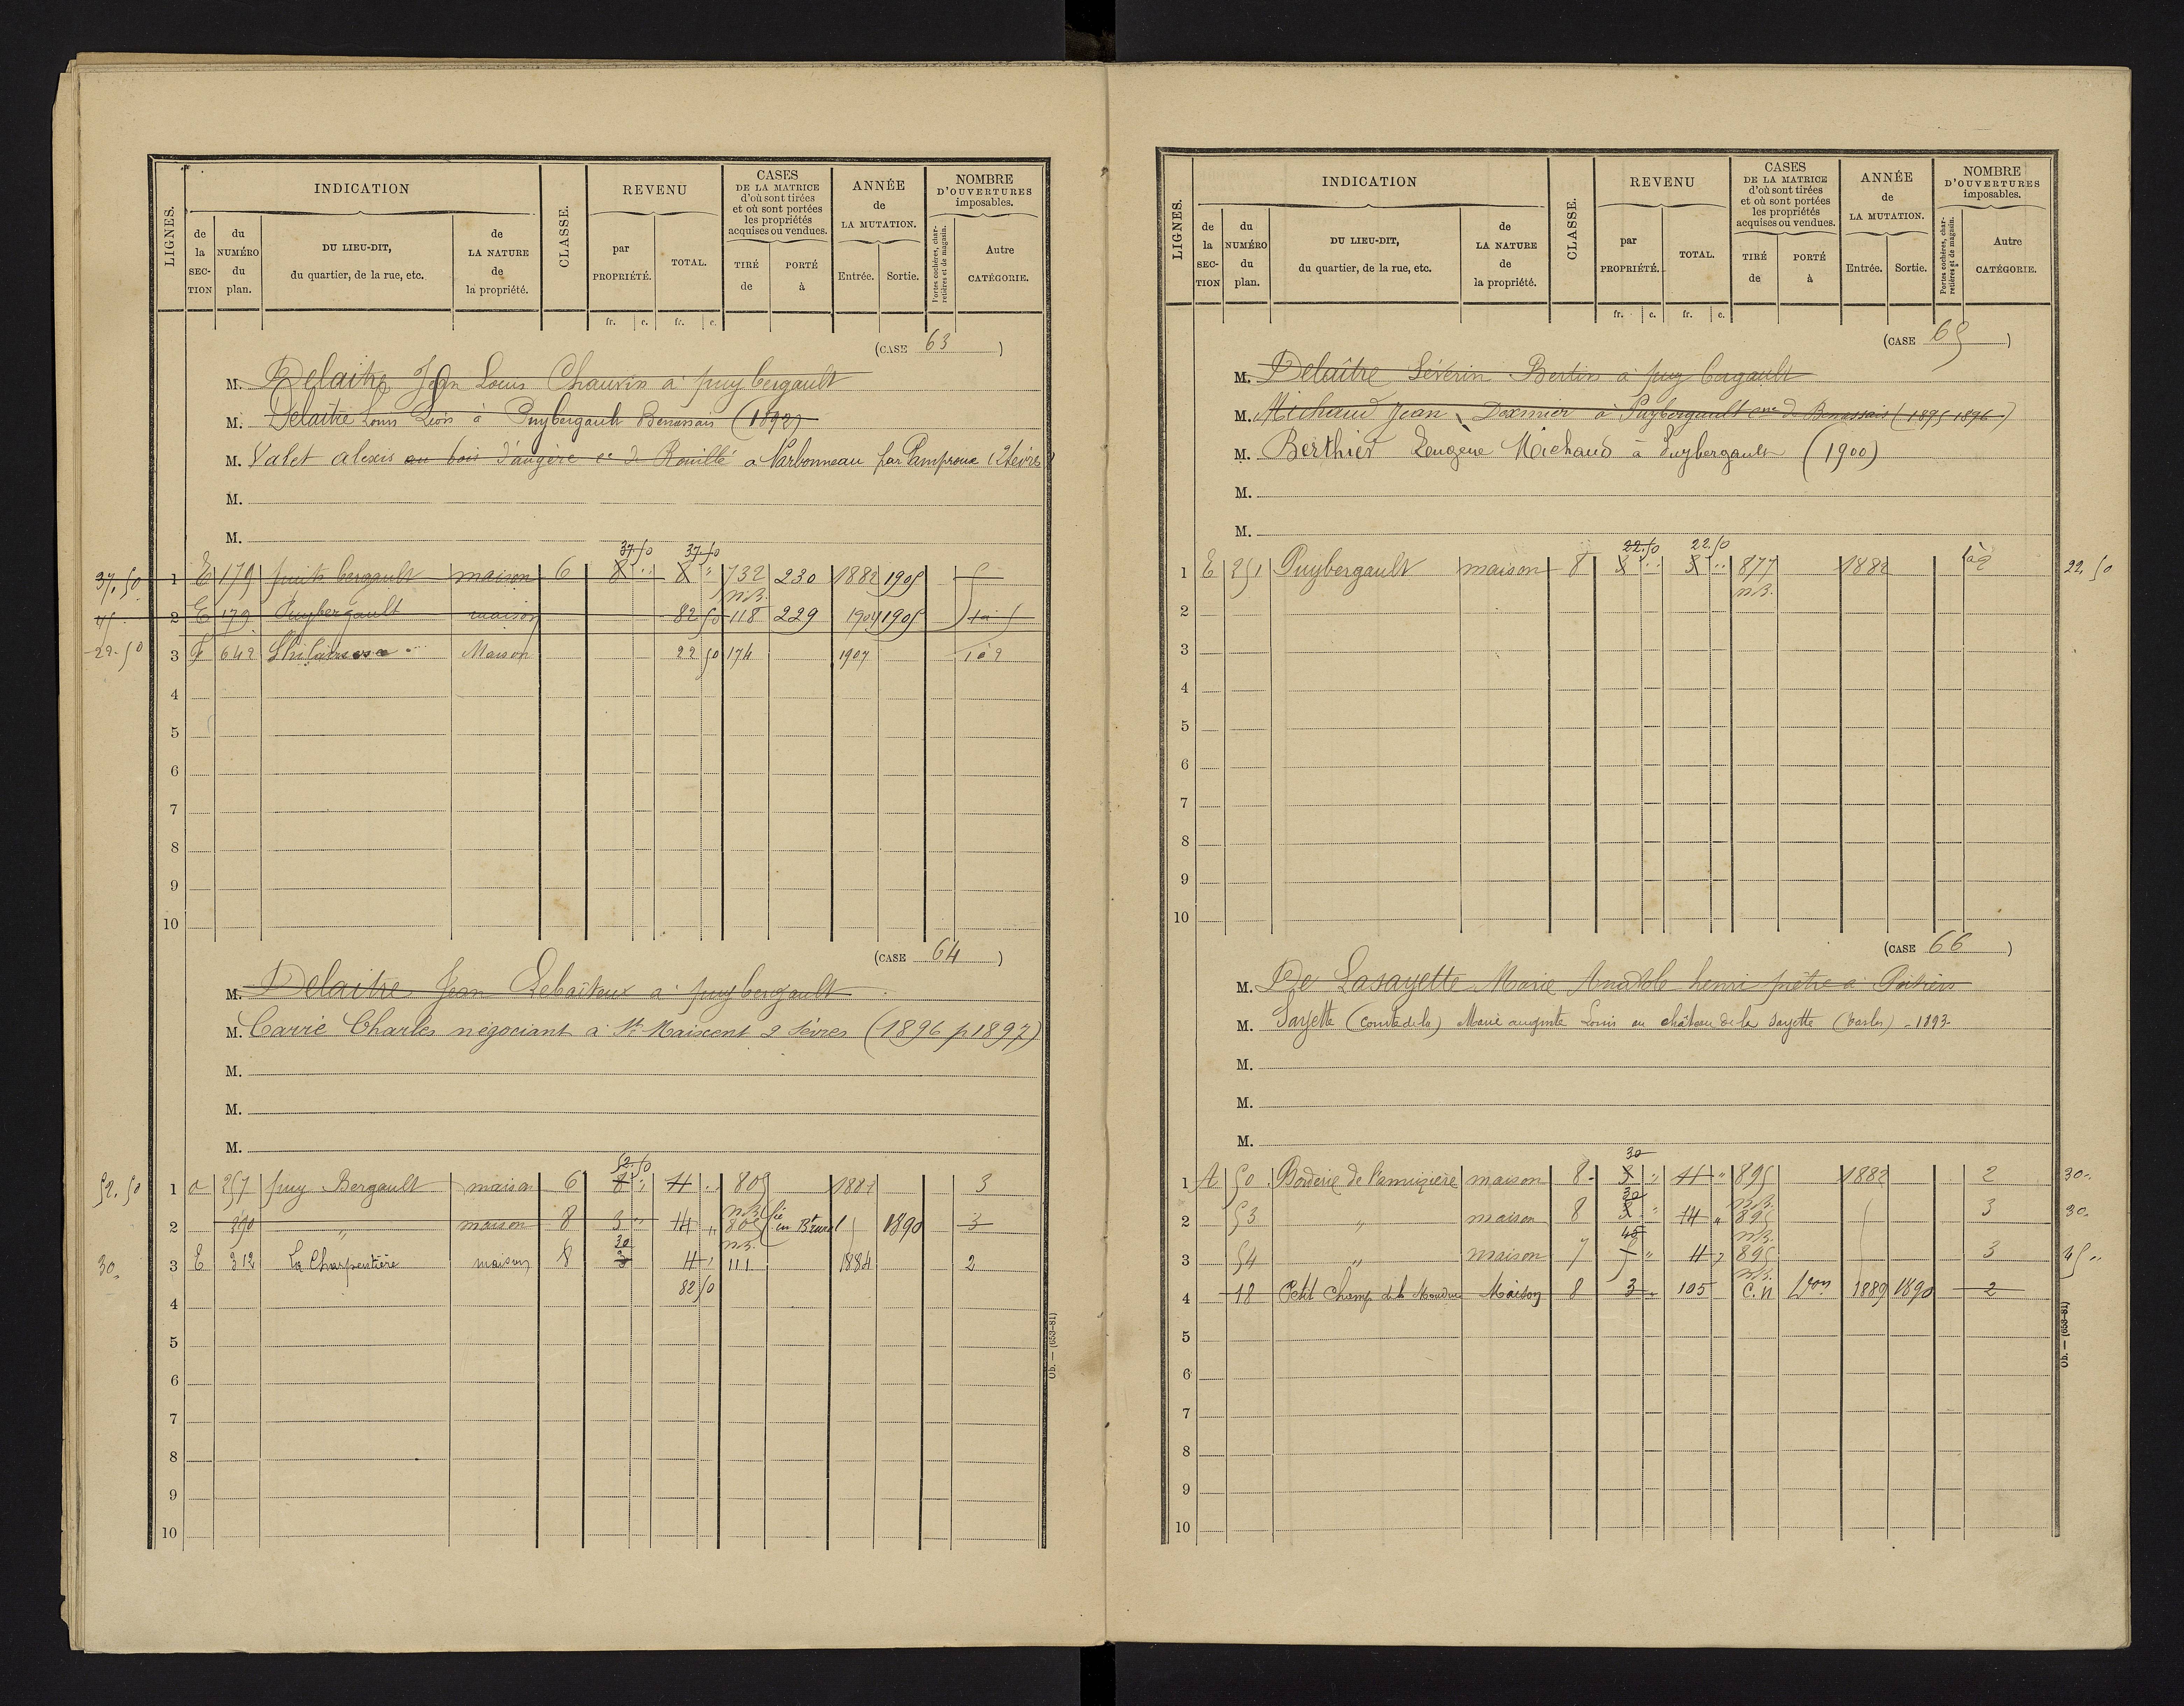 LIGNES. INDICATION CLASSE. REVENU CASES DE LA MATRICE d'où sont tirées et où sont portées les propriétés acquises ou vendues. ANNÉE de LA MUTATION. NOMBRE D'OUVERTURES imposables.
de la SECTION du NUMÉRO du plan. DU LIEU-DIT, du quartier, de la rue, etc. de LA NATURE de la propriété. par PROPRIÉTÉ. TOTAL. TIRÉ de PORTÉ à Entrée. Sortie. Portes cochères, charretières et de magasin. Autre CATÉGORIE.
fr. c. fr. c.
(CASE 63)
M. Delaitre Jean Louis Chauvin à puybergault
M. Delaître Louis Léon à Puybergault Benassais (1898)
M. Valet alexis au bois d'augère ce de Rouillé a Narbonneau par Pamproux (2 Sèvres)
M.
M.
37.50 37.50
37.50 1 E 179 puits bergault maison 6 8 " 8 " 732 230 1882 1905
n.B.
45 2 E 179 Puybergault maison 82 50 118 229 1904 1905 1à5
22.50 3 F 642 Maison 22 50 174 1907 1à2
4
5
6
7
8
9
10
(CASE 64)
M. Delaitre Jean à puybergault
M. Carré Charles négociant à St Maixent 2 Sèvres (1896 p. 1897)
M.
M.
M.
52.50
52.50 1 257 puy Bergault maison 6 8 " 11 " 805 3
n.B.
2 390 " maison 8 3 " 14 " 805 en 1890 3
30 n.B.
30. 3 E 312 La Charpentière maison 8 3 11 111 1884 2
82 50
4
5
6
7
8
9
10
Ob. — (653-81)
LIGNES. INDICATION CLASSE. REVENU CASES DE LA MATRICE d'où sont tirées et où sont portées les propriétés acquises ou vendues. ANNÉE de LA MUTATION. NOMBRE D'OUVERTURES imposables.
de la SECTION du NUMÉRO du plan. DU LIEU-DIT, du quartier, de la rue, etc. de LA NATURE de la propriété. par PROPRIÉTÉ. TOTAL. TIRÉ de PORTÉ à Entrée. Sortie. Portes cochères, charretières et de magasin. Autre CATÉGORIE.
fr. c. fr. c.
(CASE 65)
M. Delaître Séverin Bertin à puy bergault
M. Michaud Jean Dexmier à Puybergault cne de Benassais (1895 1896)
M. Berthier Eugène Michaud à Puybergault (1900)
M.
M.
22.50 22.50
1 E 251 Puybergault maison 8 3 " 3 " 877 1882 1à2 22.50
n.B.
2
3
4
5
6
7
8
9
10
(CASE 66)
M. De Lasayette Marie Anatole henri prêtre à Poitiers
M. Sayette (comte de la) Marie auguste Louis au château de la Sayette (Vasles) - 1893-
M.
M.
M.
30
1 A 50 Borderie de maison 8 3 " 11 " 895 1882 2 30..
30 n.B.
2 53 " maison 8 3 " 14 " 895 3 30.
45 n.B.
3 54 " maison 7 5 " 11 895 3 45..
n.B.
4 18 Petit Champ de la Maison 8 3 105 C.N Von 1889 1890 2
5
6
7
8
9
10
Ob. — (653-81)